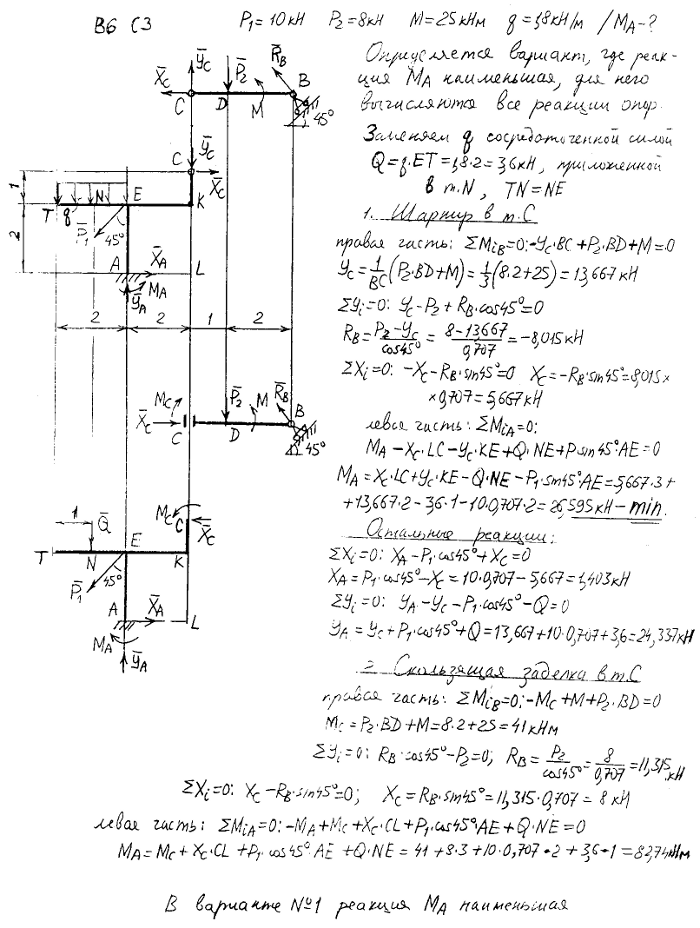 В6 С3 P₁ = 10 кН P₂ = 8 кН M = 25 кНм q = 1,8 кН/м / M_A - ?
Определяется вариант, где реак-
ция M_A наименьшая, для него
вычисляются все реакции опор.
Заменяем q сосредоточенной силой
Q = q·ET = 1,8·2 = 3,6 кН, приложенной
в т.N, TN = NE
1. Шарнир в т.С
правая часть: ΣM_iB = 0: -Y_C·BC + P₂·BD + M = 0
Y_C = 1/BC (P₂·BD + M) = 1/3 (8·2 + 25) = 13,667 кН
ΣY_i = 0: Y_C - P₂ + R_B·cos45° = 0
R_B = (P₂ - Y_C)/cos45° = (8 - 13,667)/0,707 = -8,015 кН
ΣX_i = 0: -X_C - R_B·sin45° = 0 X_C = -R_B·sin45° = 8,015 ×
× 0,707 = 5,667 кН
левая часть: ΣM_iA = 0:
M_A - X_C·LC - Y_C·KE + Q·NE + P sin45° AE = 0
M_A = X_C·LC + Y_C·KE - Q·NE - P₁·sin45° AE = 5,667·3 +
+ 13,667·2 - 3,6·1 - 10·0,707·2 = 26,595 кН - min.
Остальные реакции:
ΣX_i = 0: X_A - P₁·cos45° + X_C = 0
X_A = P₁·cos45° - X_C = 10·0,707 - 5,667 = 1,403 кН
ΣY_i = 0: Y_A - Y_C - P₁·cos45° - Q = 0
Y_A = Y_C + P₁·cos45° + Q = 13,667 + 10·0,707 + 3,6 = 24,337 кН
2. Скользящая заделка в т.С
правая часть: ΣM_iB = 0: -M_C + M + P₂·BD = 0
M_C = P₂·BD + M = 8·2 + 25 = 41 кНм
ΣY_i = 0: R_B·cos45° - P₂ = 0; R_B = P₂/cos45° = 8/0,707 = 11,315 кН
ΣX_i = 0: X_C - R_B·sin45° = 0; X_C = R_B·sin45° = 11,315·0,707 = 8 кН
левая часть: ΣM_iA = 0: -M_A + M_C + X_C·CL + P₁·cos45° AE + Q·NE = 0
M_A = M_C + X_C·CL + P₁·cos45° AE + Q·NE = 41 + 8·3 + 10·0,707·2 + 3,6·1 = 82,74 кНм
В варианте №1 реакция M_A наименьшая
Y̅_C
X̅_C
P̅₂
R̅_B
C
D
M
B
45°
C
Y̅_C
X̅_C
1
T
q
N
E
K
P̅₁
45°
2
A
X̅_A
L
M_A
Y̅_A
2
2
1
2
M_C
P̅₂
M
R̅_B
B
X̅_C
C
D
45°
M_C
1
Q̅
E
C
X̅_C
T
N
K
P̅₁
45°
A
X̅_A
L
M_A
Y̅_A